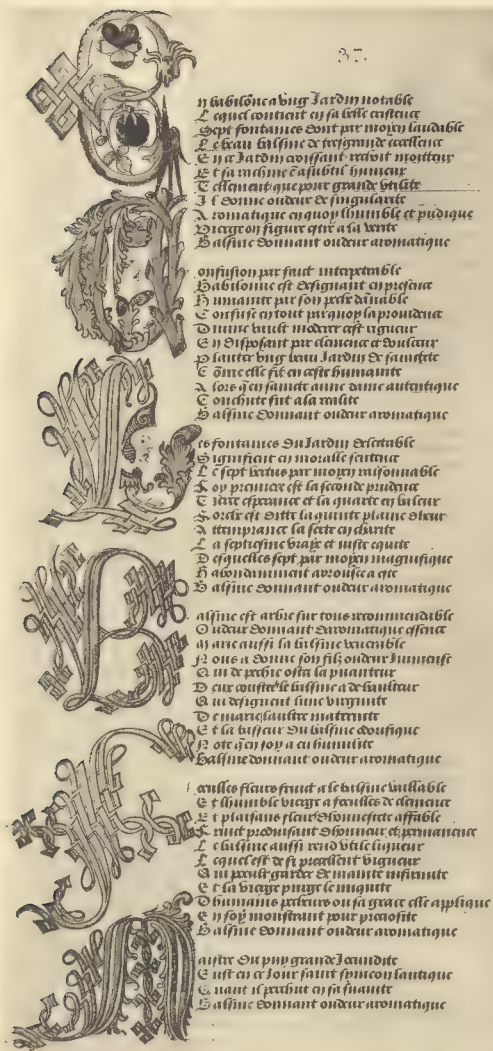 37
En babilõne a vng Jardin notable
Lequel contient en sa belle existence
Sept fontaines dont par moyen laudable
Le beau balsme de tresgrande excellence
En ce Jardin croissant recoit moitteur
Et sa rachine c̃a subtil humeur
Tellement que pour grande vtilite
Il donne oudeur de singularite
Aromatique en quoy lhumble et pudique
Vierge on figure estre a la verite
Balsme donnant oudeur aromatique
Confusion par faict interpretable
Babilonne est designant en presence
Humanite par son peche dãnable
Confuse en tout parquoy la prouidence
Diuine vault moderer cest rigueur
En disposant par clemence et doulceur
Planter vng beau Jardin de sainctete
Cõme elle fit en ceste humanite
Alors q̃ en saincte anne dame autentique
Conchute fut a la realite
Balsme donnant oudeur aromatique
Les fontaines du Jardin delectable
Signifient en moralle sentence
Les sept vertus par moyen raisonnable
Foy premiere est la seconde prudence
Tierce esperance et la quarte en valeur
Force est ditte la quinte plaine dheur
Attemprance la sexte en charite
La septiesme vraye et iuste equite
Desquelles sept par moyen magnifique
Habondamment arousee a este
Balsme donnant oudeur aromatique
Balsme est arbre sur tous recommendable
Oudeur donnant daromatique essence
Marie aussi la balsme venerable
Nous a donne son filz oudeur immense
Qui de peche osta la puanteur
Deux coustez le balsme a de haulteur
Qui designent lune virginite
De marie laultre maternite
Et la basseur du balsme edoufique
Note q̃ en soy a eu humilite
Balsme donnant oudeur aromatique
Foeulles fleurs fruict a le balsme vaillable
Et lhumble vierge a foeulles de clemence
Et plaisans fleur dhonnestete affable
Fruict produisant dhonneur et permanence
Le balsme aussi rend vtile liqueur
Lequel est de si precellent vigueur
Qui poeult garder de mainte infirmite
Et la vierge purge le iniquite
Dhumains pecheurs ou sa grace elle applique
En soy monstrant pour preciosite
Balsme donnant oudeur aromatique
Maistre du puy grande Jocundite
Eust en ce Jour sainct symeon lantique
Quant il perchut en sa suauite
Balsme donnant oudeur aromatique